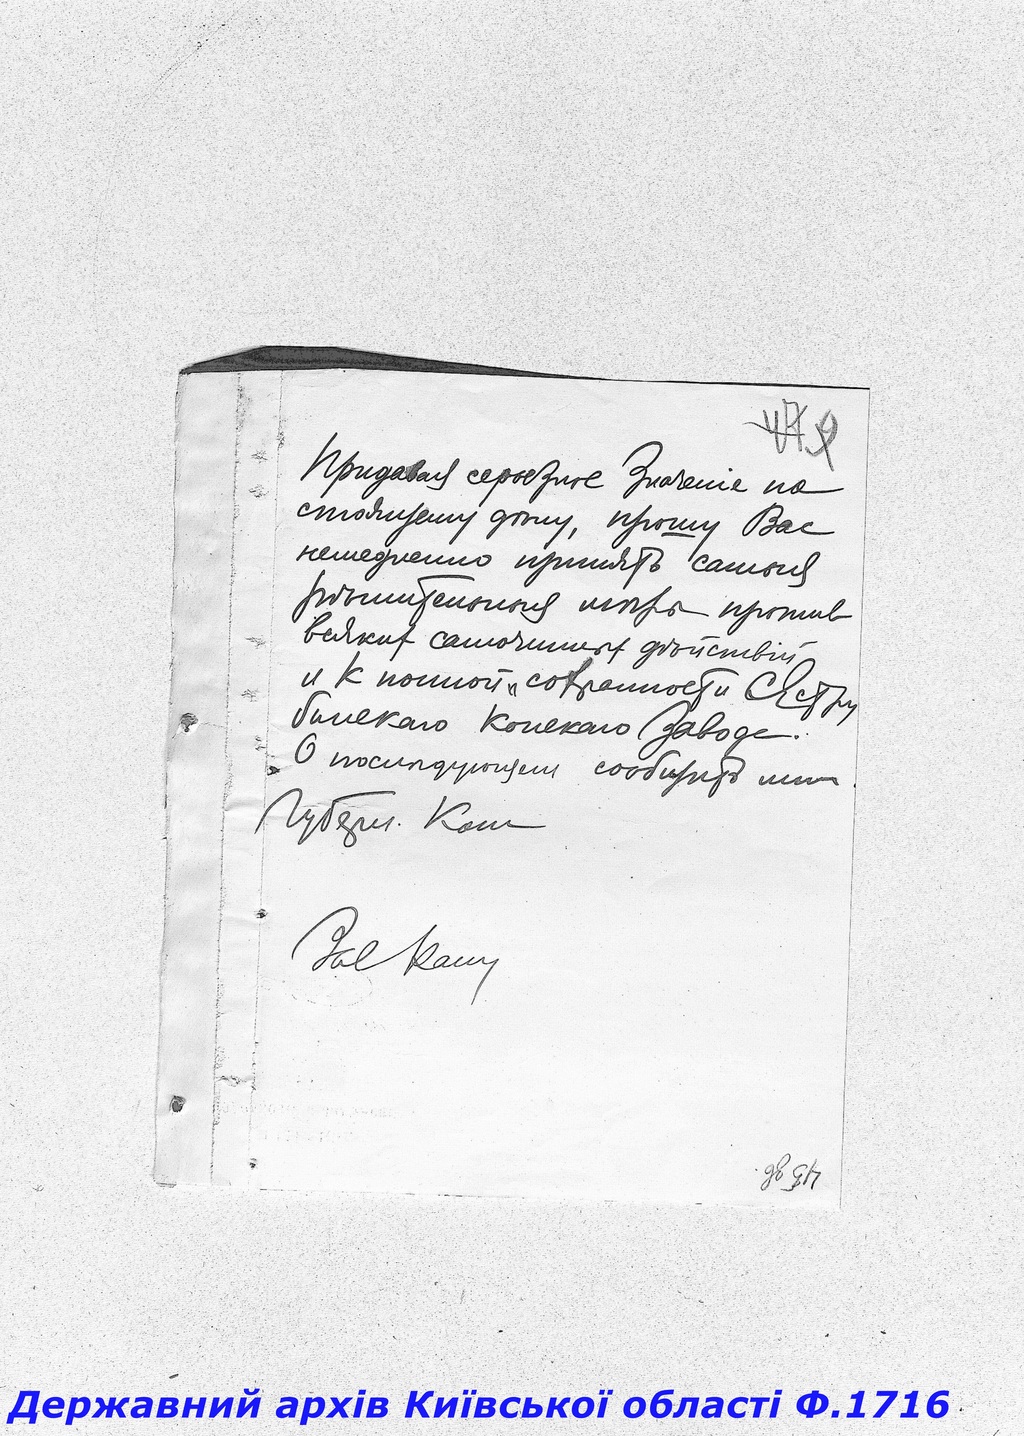 Придавая серьезное Значеніе на
стоящему дѣлу, прошу Вас
немедленно принять самыя
рѣшительныя мѣры против
всяких самочинных дѣйствій
и к полной сохранности
Конскаго Завода.
О послѣдующем сообщить мнѣ
Губерн. Ком
Державний архів Київської області Ф.1716